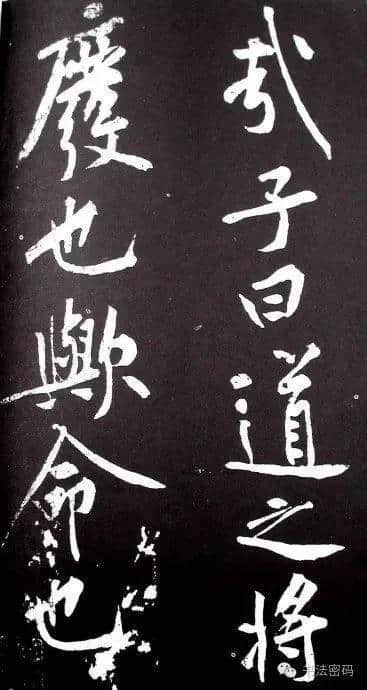 哉子曰道之将
廢也歟命也
书法密码